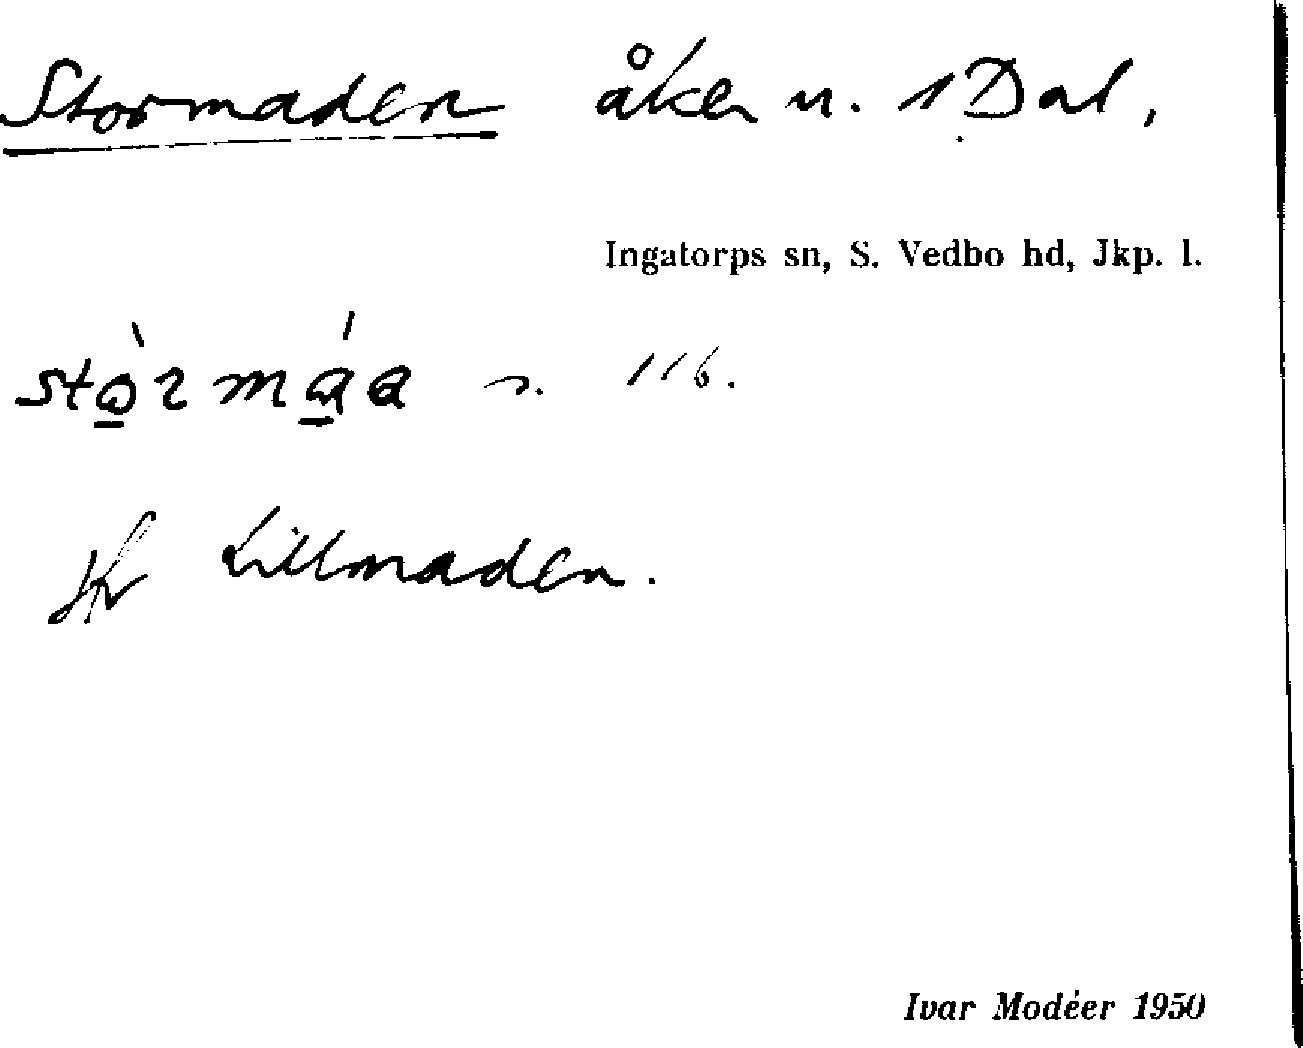 Stormaden åker u. 1 Dal,
Ingatorps sn, S. Vedbo hd, Jkp. l.
116.
Jfr Lillmaden.
Ivar Modéer 1950